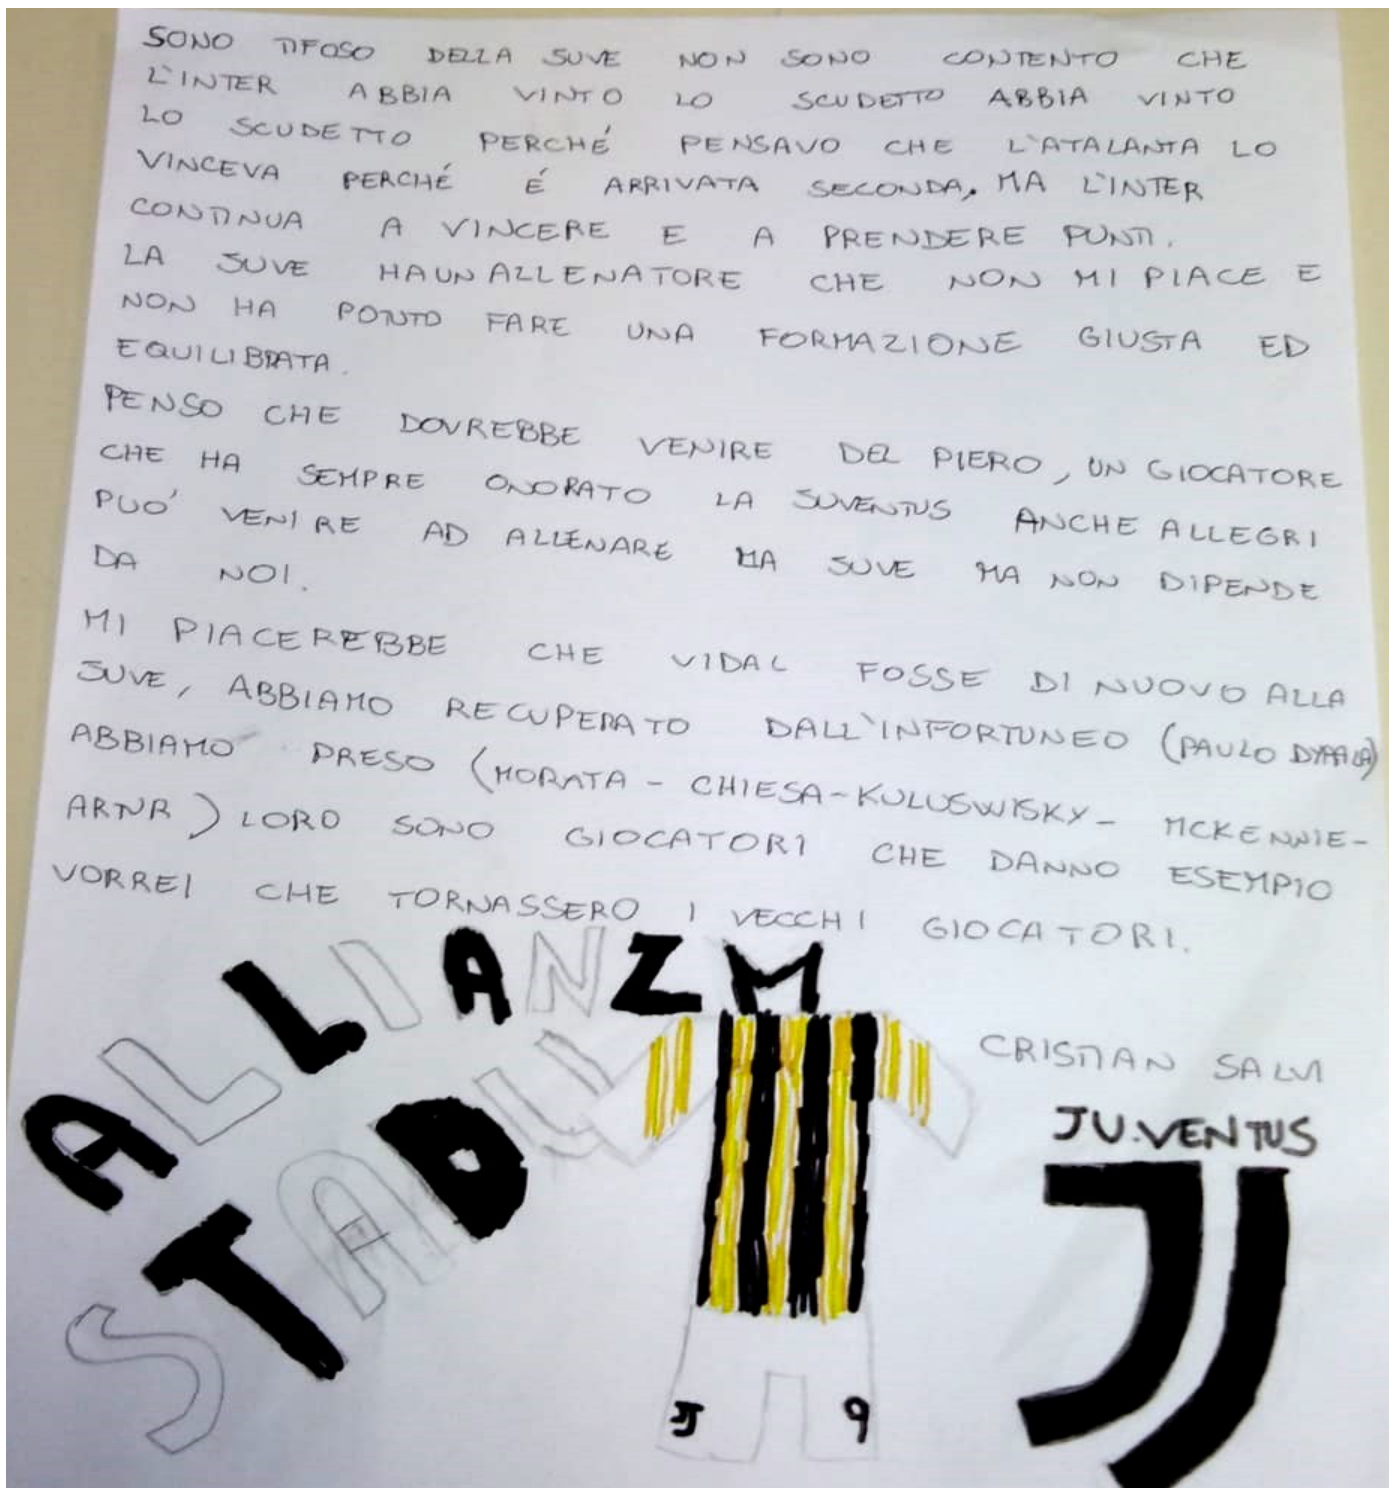 SONO TIFOSO DELLA JUVE NON SONO CONTENTO CHE
L'INTER ABBIA VINTO LO SCUDETTO ABBIA VINTO
LO SCUDETTO PERCHÉ PENSAVO CHE L'ATALANTA LO
VINCEVA PERCHÉ É ARRIVATA SECONDA, MA L'INTER
CONTINUA A VINCERE E A PRENDERE PUNTI.
LA JUVE HA UN ALLENATORE CHE NON MI PIACE E
NON HA POTUTO FARE UNA FORMAZIONE GIUSTA ED
EQUILIBRATA.
PENSO CHE DOVREBBE VENIRE DEL PIERO, UN GIOCATORE
CHE HA SEMPRE ONORATO LA JUVENTUS ANCHE ALLEGRI
PUO' VENIRE AD ALLENARE LA JUVE MA NON DIPENDE
DA NOI.
MI PIACEREBBE CHE VIDAL FOSSE DI NUOVO ALLA
JUVE, ABBIAMO RECUPERATO DALL'INFORTUNEO (PAULO DYBALA)
ABBIAMO PRESO (MORATA - CHIESA - KULUSWISKY - MCKENNIE -
ARTUR) LORO SONO GIOCATORI CHE DANNO ESEMPIO
VORREI CHE TORNASSERO I VECCHI GIOCATORI.
ALLIANZ
STADIUM
CRISTIAN SALVI
JUVENTUS
J 9